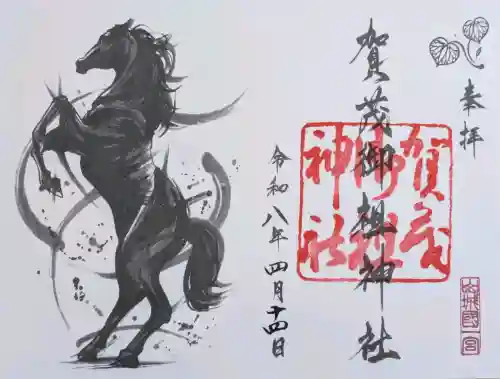 奉拝
賀茂御祖神社
賀茂
御祖
神社
山城國一宮
令和八年四月十四日